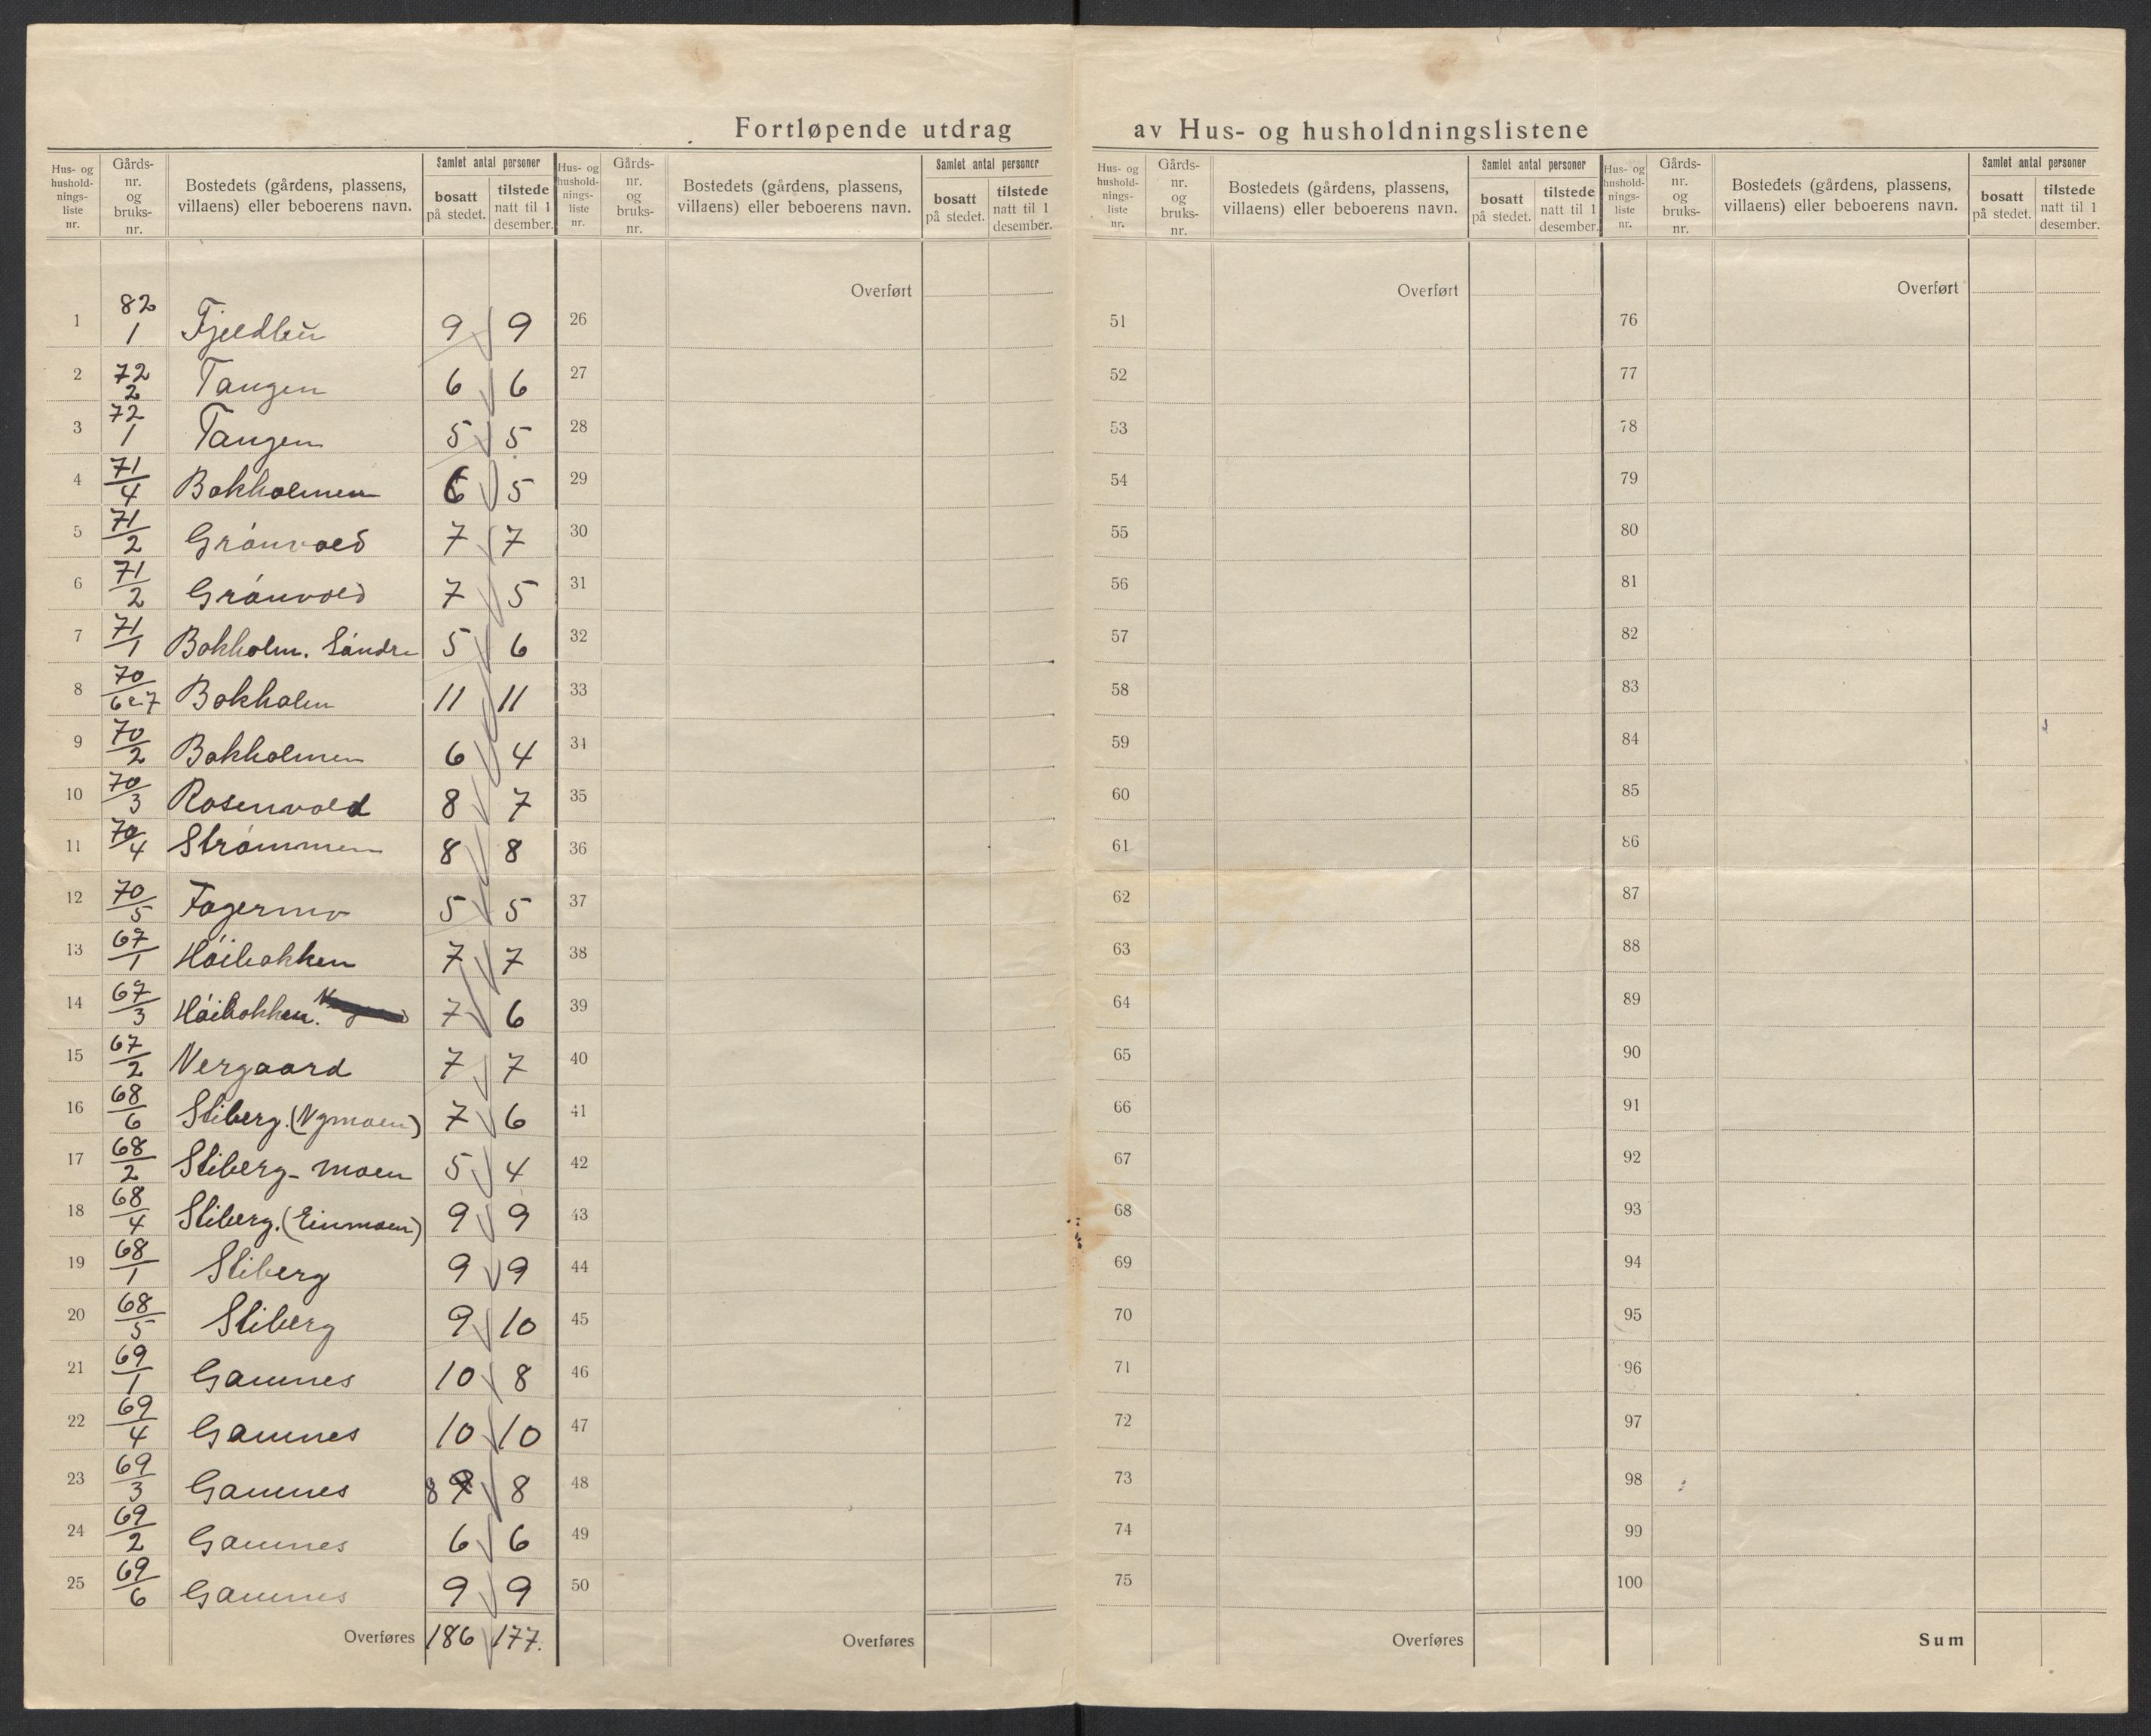 Fortløpende utdrag av Hus- og husholdningslistene
Hus- og hushold-nings-liste nr. | Gårds-nr. og bruks-nr. | Bostedets (gårdens, plassens, villaens) eller beboerens navn. | Samlet antal personer | bosatt på stedet. | tilstede natt til 1 desember.
Hus- og hushold-nings-liste nr. | Gårds-nr. og bruks-nr. | Bostedets (gårdens, plassens, villaens) eller beboerens navn. | Samlet antal personer | bosatt på stedet. | tilstede natt til 1 desember.
Hus- og hushold-nings-liste nr. | Gårds-nr. og bruks-nr. | Bostedets (gårdens, plassens, villaens) eller beboerens navn. | Samlet antal personer | bosatt på stedet. | tilstede natt til 1 desember.
Hus- og hushold-nings-liste nr. | Gårds-nr. og bruks-nr. | Bostedets (gårdens, plassens, villaens) eller beboerens navn. | Samlet antal personer | bosatt på stedet. | tilstede natt til 1 desember.
Overført Overført Overført
1 82/1 Fjeldbu 9 9 26 51 76
2 72/2 Tangen 6 6 27 52 77
3 72/1 Tangen 5 5 28 53 78
4 71/4 Bakholmen 6 5 29 54 79
5 71/2 Grønvold 7 7 30 55 80
6 71/2 Grønvold 7 5 31 56 81
7 71/1 Bakholm. Søndre 5 6 32 57 82
8 70/6 & 7 Bakholm 11 11 33 58 83
9 70/2 Bakholmen 6 4 34 59 84
10 70/3 Rosenvold 8 7 35 60 85
11 70/4 Strømmen 8 8 36 61 86
12 70/5 Fagermo 5 5 37 62 87
13 67/1 Høibakken 7 7 38 63 88
14 67/3 Høibakken. 7 6 39 64 89
15 67/2 Nergaard 7 7 40 65 90
16 68/6 Stiberg. (Nymoen) 7 6 41 66 91
17 68/2 Stiberg-moen 5 4 42 67 92
18 68/4 Stiberg. (Einmoen) 9 9 43 68 93
19 68/1 Stiberg 9 9 44 69 94
20 68/5 Stiberg 9 10 45 70 95
21 69/1 Gamnes 10 8 46 71 96
22 69/4 Gamnes 10 10 47 72 97
23 69/3 Gamnes 8 9 8 48 73 98
24 69/2 Gamnes 6 6 49 74 99
25 69/6 Gamnes 9 9 50 75 100
Overføres 186 177. Overføres Overføres Sum